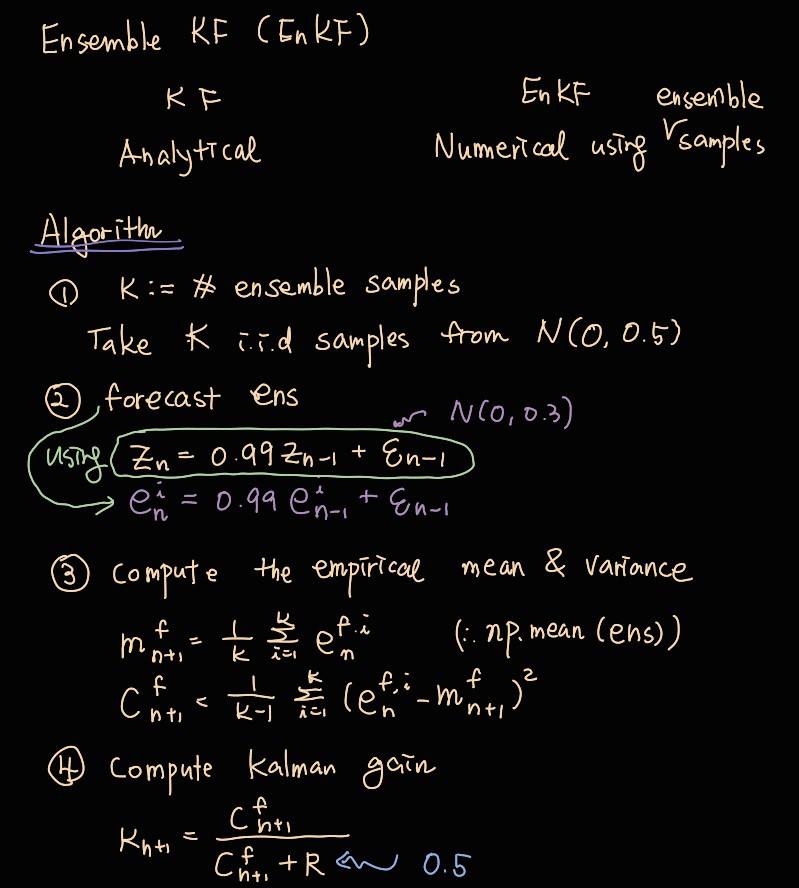 Ensemble KF (EnKF)
KF EnKF
Analytical Numerical using ensemble samples
Algorithm
① K := # ensemble samples
Take K i.i.d samples from N(0, 0.5)
② forecast ens
N(0, 0.3)
using Zₙ = 0.99 Zₙ₋₁ + εₙ₋₁
eₙⁱ = 0.99 eₙ₋₁ⁱ + εₙ₋₁
③ compute the empirical mean & variance
m^f_{n+1} = 1/K Σ_{i=1}^{K} e_n^{f,i} (∴ np.mean(ens))
C^f_{n+1} = 1/(K-1) Σ_{i=1}^{K} (e_n^{f,i} - m^f_{n+1})²
④ compute Kalman gain
K_{n+1} = C^f_{n+1} / (C^f_{n+1} + R) ⇐ 0.5